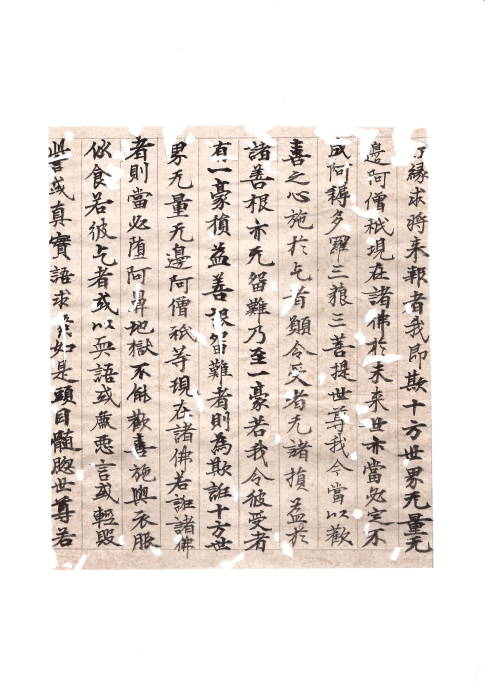 縁求將来報者我即欺十方世界无量无
邊阿僧祇現在諸佛於未来世亦當必定不
成阿耨多羅三藐三菩提世尊我今當以歡
善之心施於乞者願令受者无諸損益於
諸善根亦无留難乃至一豪若我令彼受者
有一豪損益善根留難者則為欺誑十方世
界无量无邊阿僧祇等現在諸佛若誑諸佛
者則當必堕阿鼻地獄不能歡喜施與衣服
飲食若彼乞者或以耎語或麁惡言或輕毀
呰言或真實語求索如是頭目髓腦世尊若